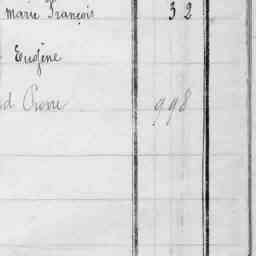 Marie François 32
Eugène
d Pierre 998